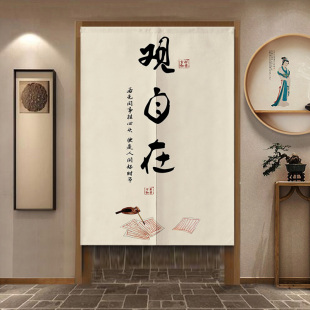 观自在
若无闲事挂心头 便是人间好时节